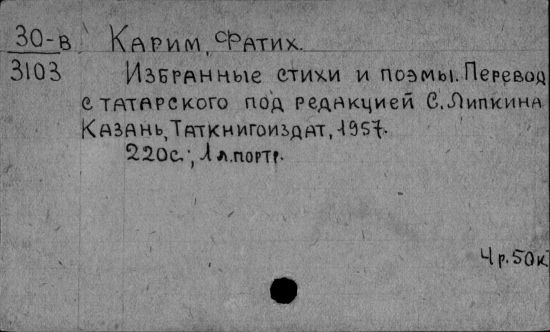 30-в Карим, Фатих.
3103 Избранные стихи и поэмы. Перевод
с татарского под редакцией С. Липкина
Казань, Таткнигоиздат, 1957.
220с.; 1 л. портр.
4 р. 50к.